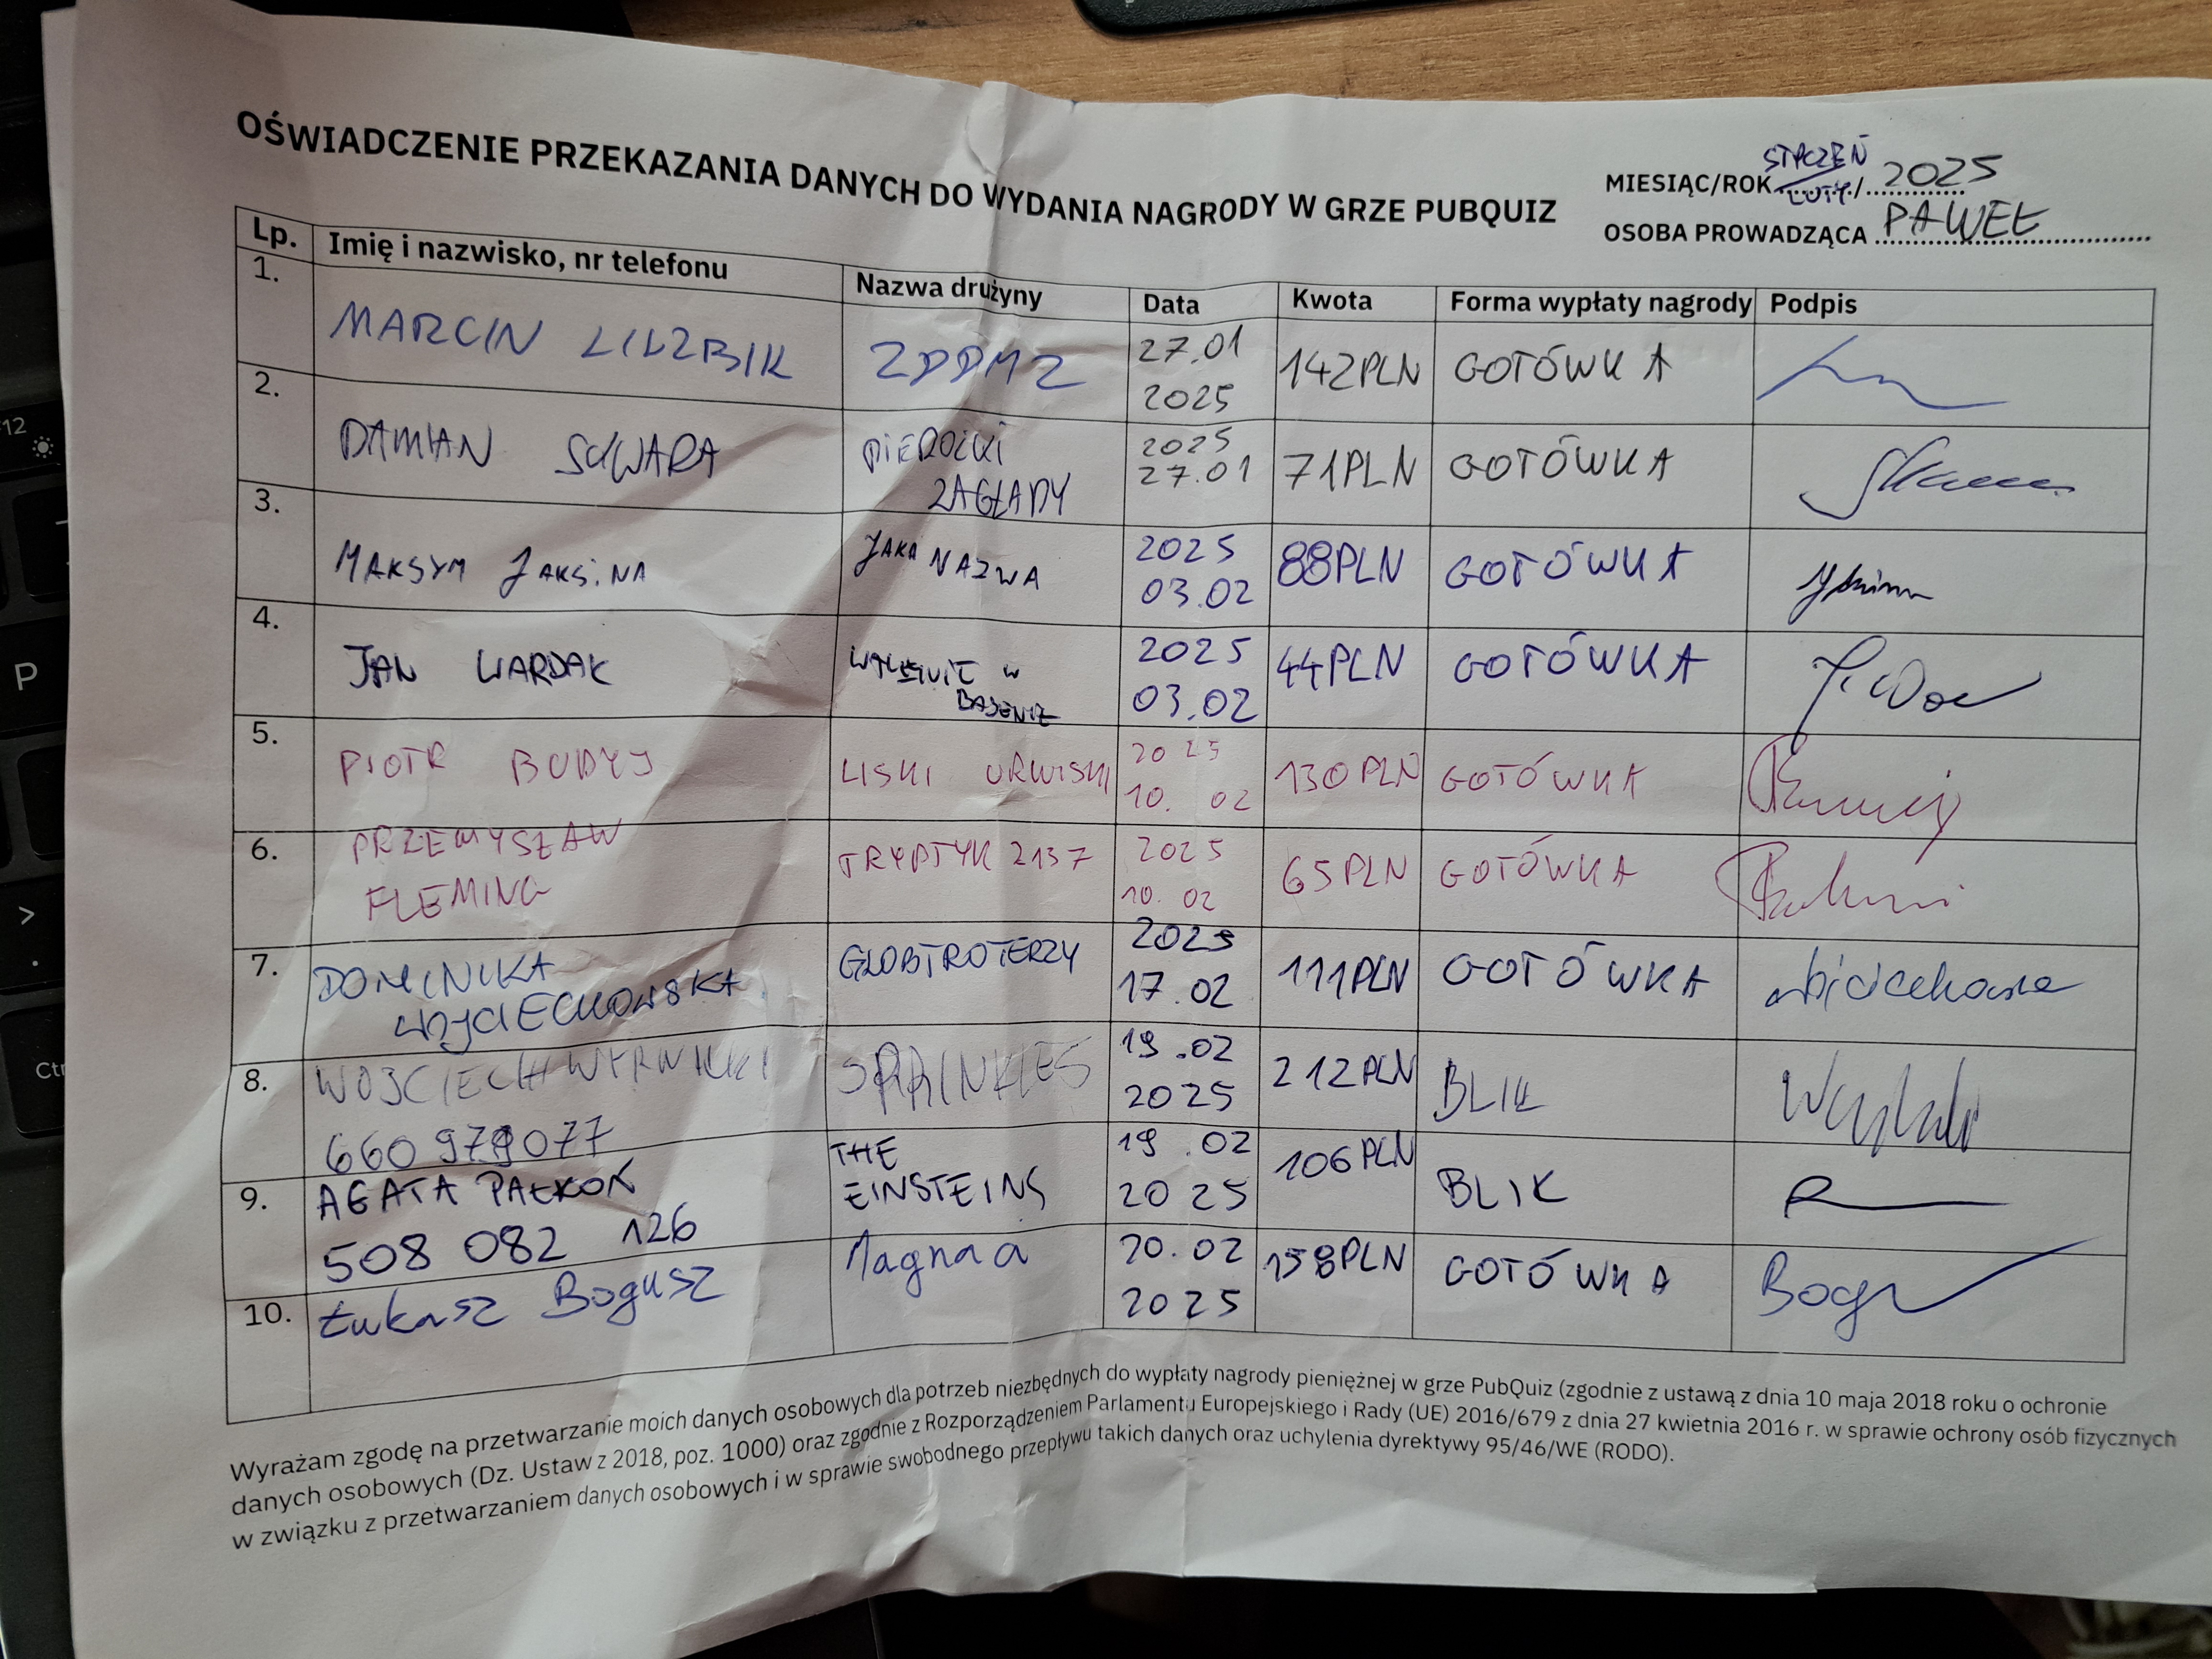 OŚWIADCZENIE PRZEKAZANIA DANYCH DO WYDANIA NAGRODY W GRZE PUBQUIZ
STYCZEŃ
MIESIĄC/ROK LUTY / 2025
OSOBA PROWADZĄCA PAWEŁ
Lp. Imię i nazwisko, nr telefonu Nazwa drużyny Data Kwota Forma wypłaty nagrody Podpis
1. MARCIN ZDDMZ 27.01 2025 142PLN GOTÓWKA
2. DAMIAN PIEROŻKI ZAGŁADY 2025 27.01 71PLN GOTÓWKA
3. MAKSYM JAKSINA JAKA NAZWA 2025 03.02 88PLN GOTÓWKA
4. JAN WARDAK W BASENIE 2025 03.02 44PLN GOTÓWKA
5. PIOTR BUDYJ LISKI URWISKI 2025 10.02 130PLN GOTÓWKA
6. PRZEMYSŁAW FLEMING TRYPTYK 2137 2025 10.02 65PLN GOTÓWKA
7. DOMINIKA WOJCIECHOWSKA GLOBTROTERZY 2025 17.02 111PLN GOTÓWKA
8. WOJCIECH 660 979 077 SPRINKLES 19.02 2025 212PLN BLIK
9. AGATA PAŁKOK 508 082 126 THE EINSTEINS 19.02 2025 106PLN BLIK
10. Łukasz Bogusz Magnaa 20.02 2025 158PLN GOTÓWKA
Wyrażam zgodę na przetwarzanie moich danych osobowych dla potrzeb niezbędnych do wypłaty nagrody pieniężnej w grze PubQuiz (zgodnie z ustawą z dnia 10 maja 2018 roku o ochronie
danych osobowych (Dz. Ustaw z 2018, poz. 1000) oraz zgodnie z Rozporządzeniem Parlamentu Europejskiego i Rady (UE) 2016/679 z dnia 27 kwietnia 2016 r. w sprawie ochrony osób fizycznych
w związku z przetwarzaniem danych osobowych i w sprawie swobodnego przepływu takich danych oraz uchylenia dyrektywy 95/46/WE (RODO).
F12
P
>
.
Ctr